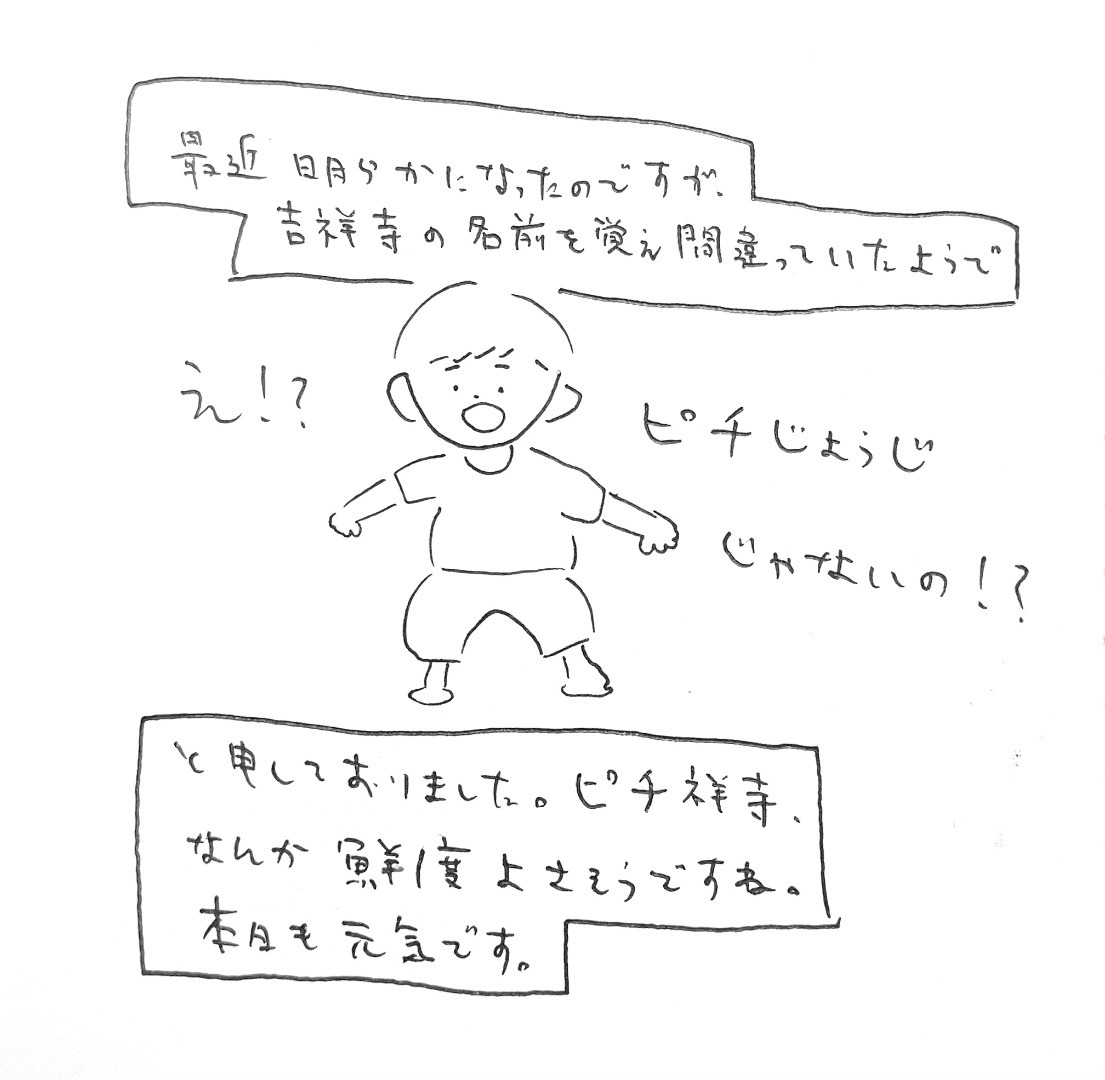 最近明らかになったのですが、
吉祥寺の名前を覚え間違っていたようで
え!?
ピチじょうじ
じゃないの!?
と申しておりました。ピチ祥寺、
なんか鮮度よさそうですね。
本日も元気です。